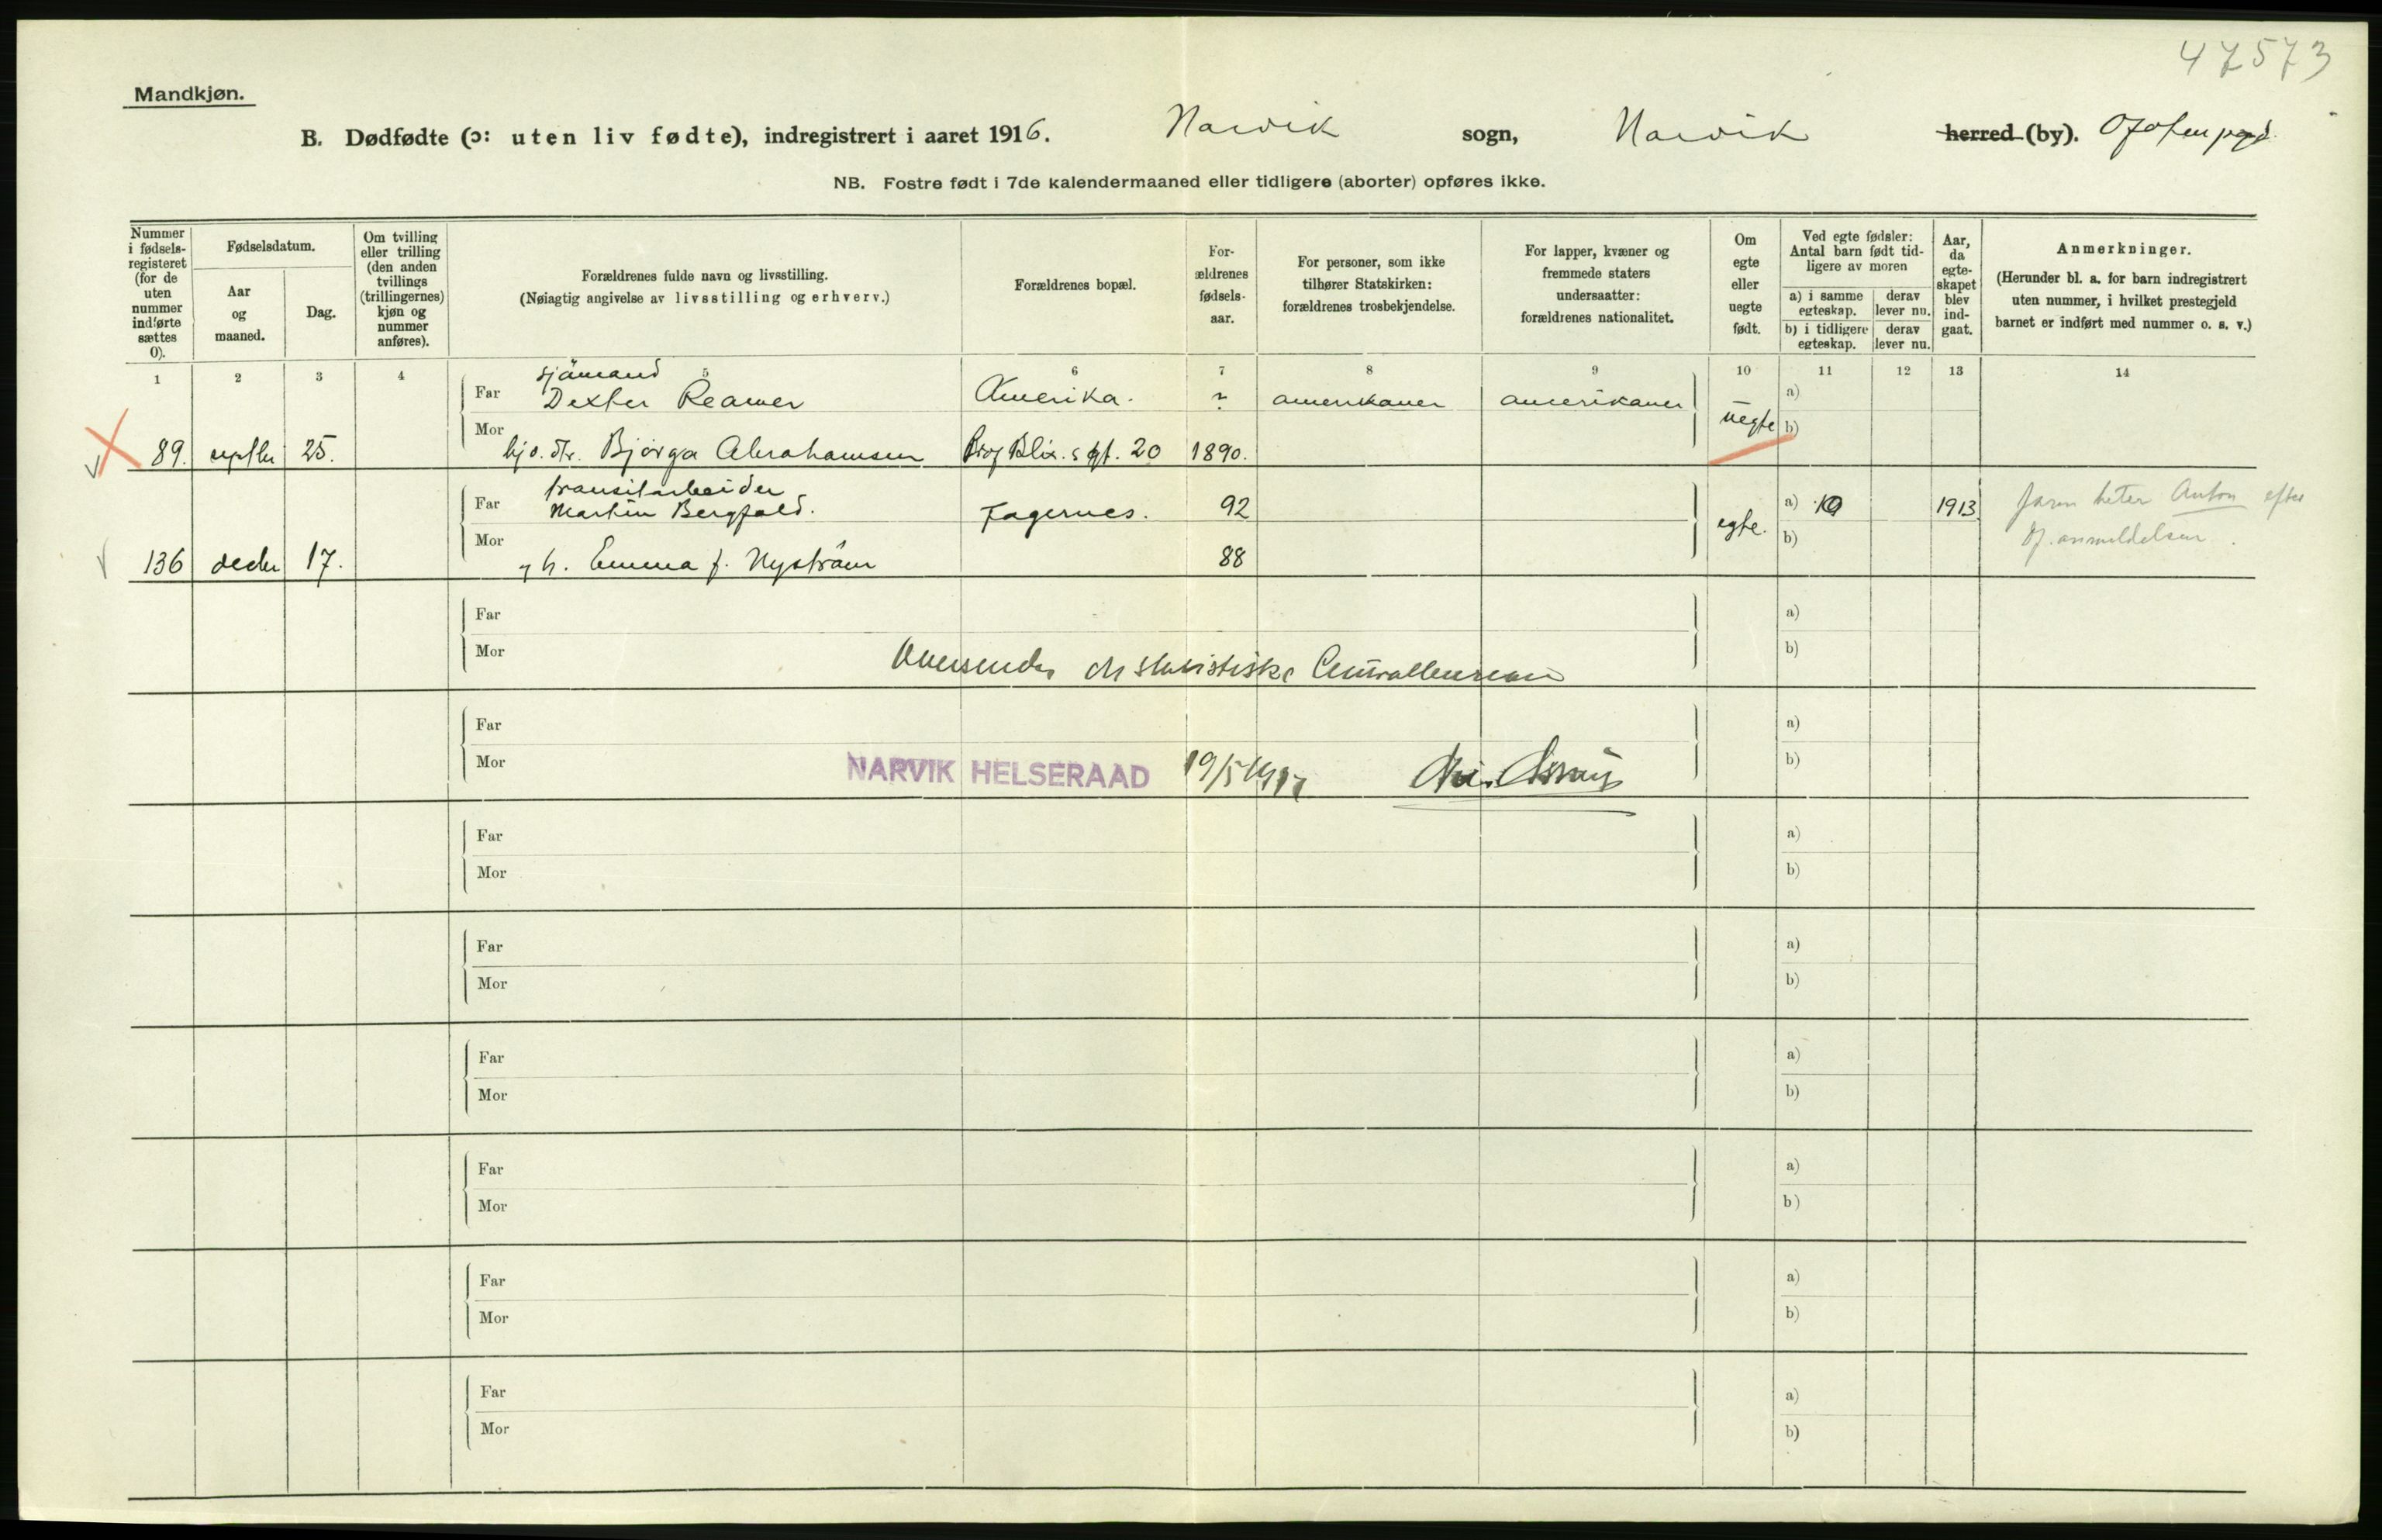 47573
Mandkjøn.
B. Dødfødte (ɔ: uten liv fødte), indregistrert i aaret 1916. Narvik sogn, Narvik herred (by). Ofoten pgd.
NB. Fostre født i 7de kalendermaaned eller tidligere (aborter) opføres ikke.
Nummer i fødsels-registeret (for de uten nummer indførte sættes 0).
Fødselsdatum.
Aar og maaned.
Dag.
Om tvilling eller trilling (den anden tvillings (trillingernes) kjøn og nummer anføres).
Forældrenes fulde navn og livsstilling.
(Nøiagtig angivelse av livsstilling og erhverv.)
Forældrenes bopæl.
For-ældrenes fødsels-aar.
For personer, som ikke tilhører Statskirken: forældrenes trosbekjendelse.
For lapper, kvæner og fremmede staters undersaatter: forældrenes nationalitet.
Om egte eller uegte født.
Ved egte fødsler: Antal barn født tid-ligere av moren
a) i samme egteskap. derav lever nu.
b) i tidligere egteskap. derav lever nu.
Aar, da egte-skapet blev ind-gaat.
Anmerkninger.
(Herunder bl. a. for barn indregistrert uten nummer, i hvilket prestegjeld barnet er indført med nummer o. s. v.)
1 2 3 4 5 6 7 8 9 10 11 12 13 14
sjömand
Far Dexter Reamer Amerika. ? amerikaner amerikaner uegte a)
b)
89. septbr 25. Mor Bjørga Abrahamsen 20 1890.
transitarbeider
Far Martin Bergfald. Fagernes. 92 egte. a) 1913 faren heter Anton efter
b)
136 decbr 17. Mor h. Emma f. Nyström 88
Far a)
Mor b)
Oversendes det statistiske Centralbureau
Far a)
Mor b)
NARVIK HELSERAAD 19/5 1917
Far a)
Mor b)
Far a)
Mor b)
Far a)
Mor b)
Far a)
Mor b)
Far a)
Mor b)
Far a)
Mor b)